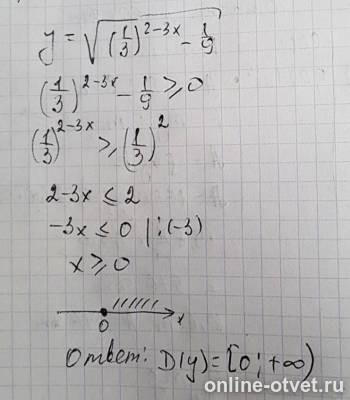 y = √((1/3)^(2-3x) - 1/9)
(1/3)^(2-3x) - 1/9 ≥ 0
(1/3)^(2-3x) ≥ (1/3)^2
2-3x ≤ 2
-3x ≤ 0 | :(-3)
x ≥ 0
0 x
Ответ: D(y) = [0; +∞)
online-otvet.ru